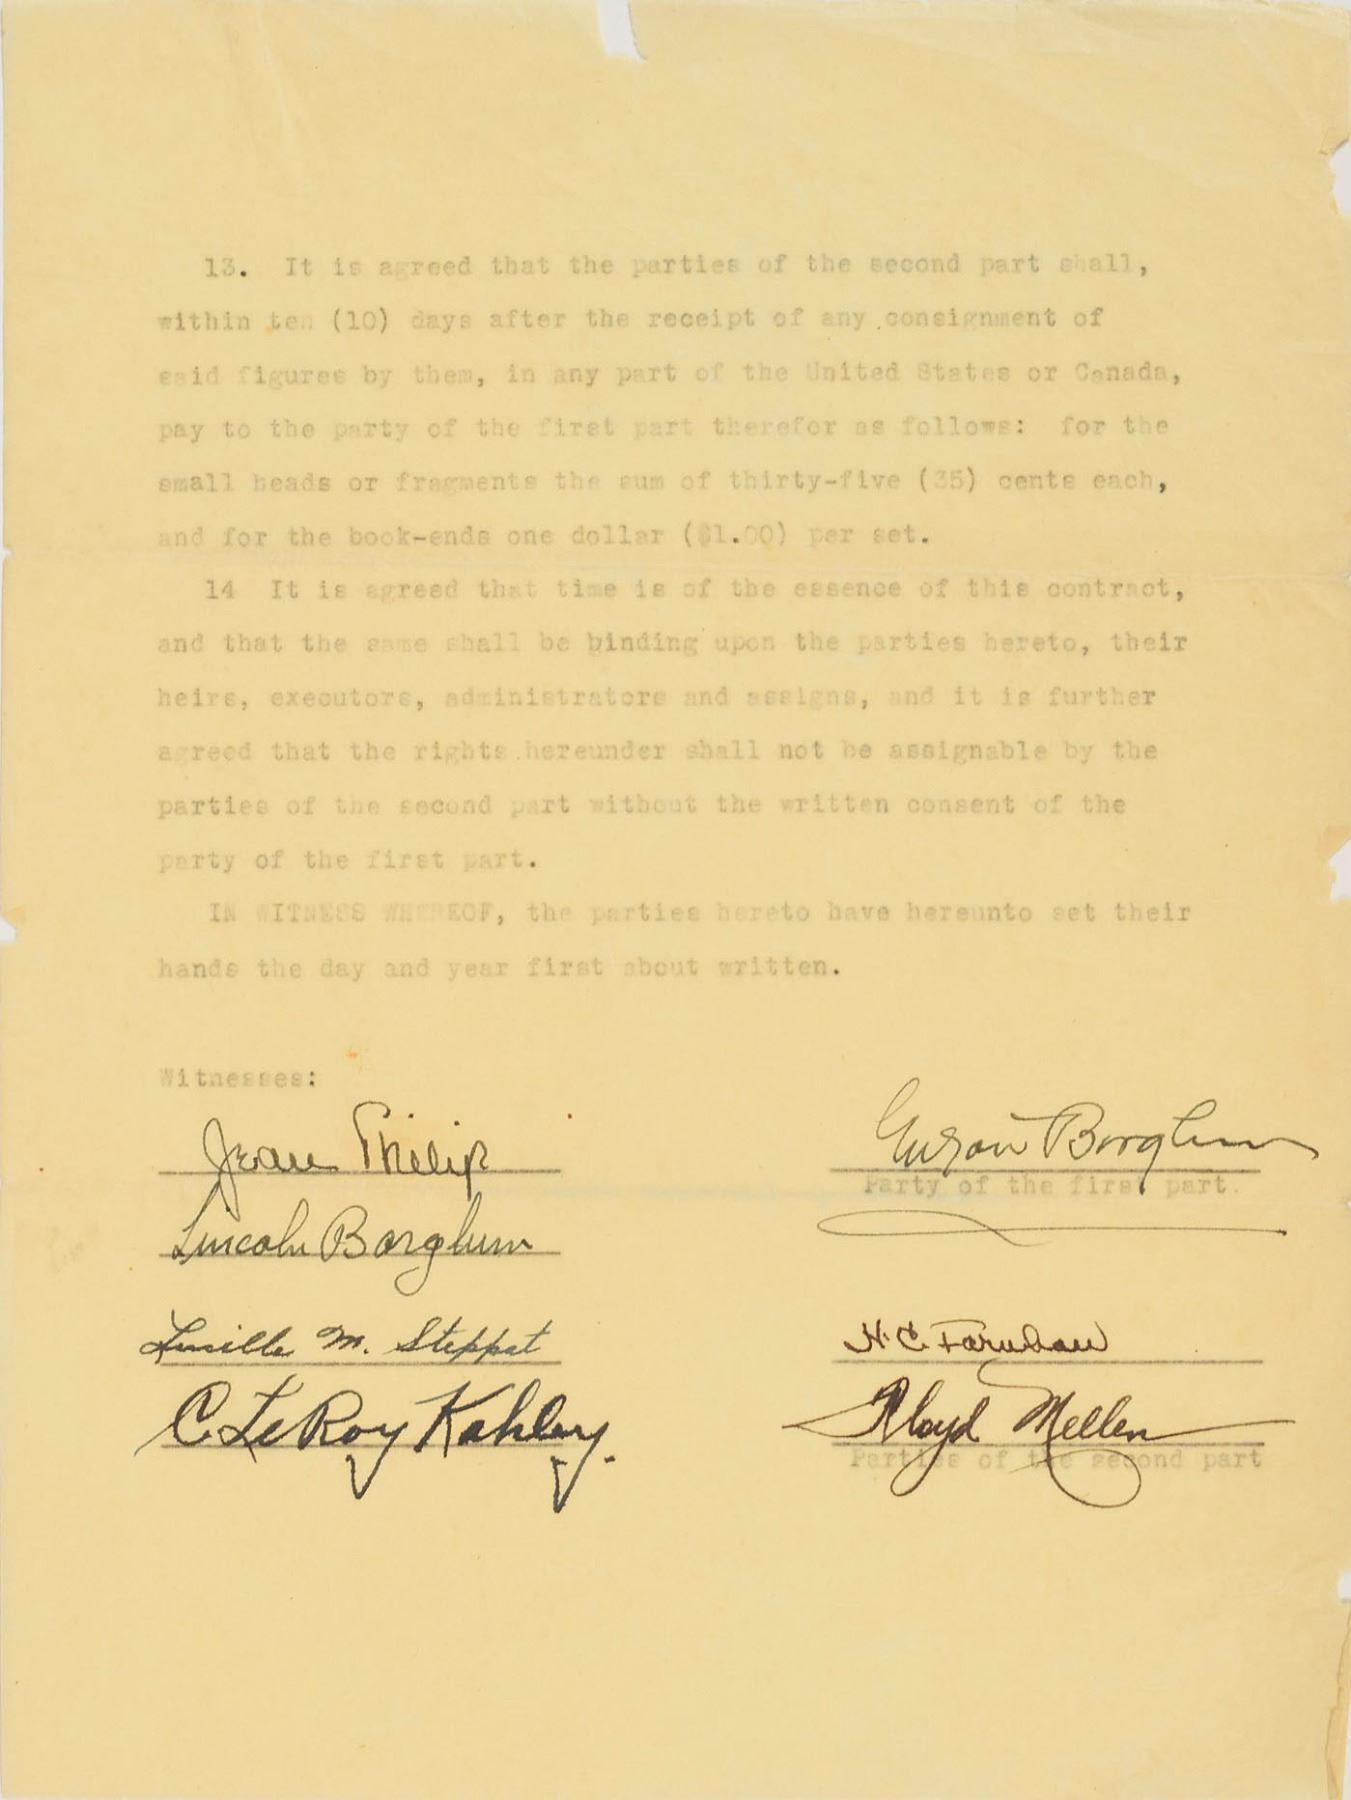 13. It is agreed that the parties of the second part shall,
within ten (10) days after the receipt of any consignment of
said figures by them, in any part of the United States or Canada,
pay to the party of the first part therefor as follows: for the
small heads or fragments the sum of thirty-five (35) cents each,
and for the book-ends one dollar ($1.00) per set.
14 It is agreed that time is of the essence of this contract,
and that the same shall be binding upon the parties hereto, their
heirs, executors, administrators and assigns, and it is further
agreed that the rights hereunder shall not be assignable by the
parties of the second part without the written consent of the
party of the first part.
IN WITNESS WHEREOF, the parties hereto have hereunto set their
hands the day and year first about written.
Witnesses:
Jean Philip
Gutzon Borglum
Party of the first part.
Lincoln Borglum
Lucille M. Steppat
H. C. Farnham
C LeRoy Kahley.
Lloyd Mellen
Parties of the second part